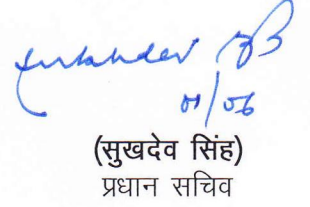 01/06
(सुखदेव सिंह)
प्रधान सचिव